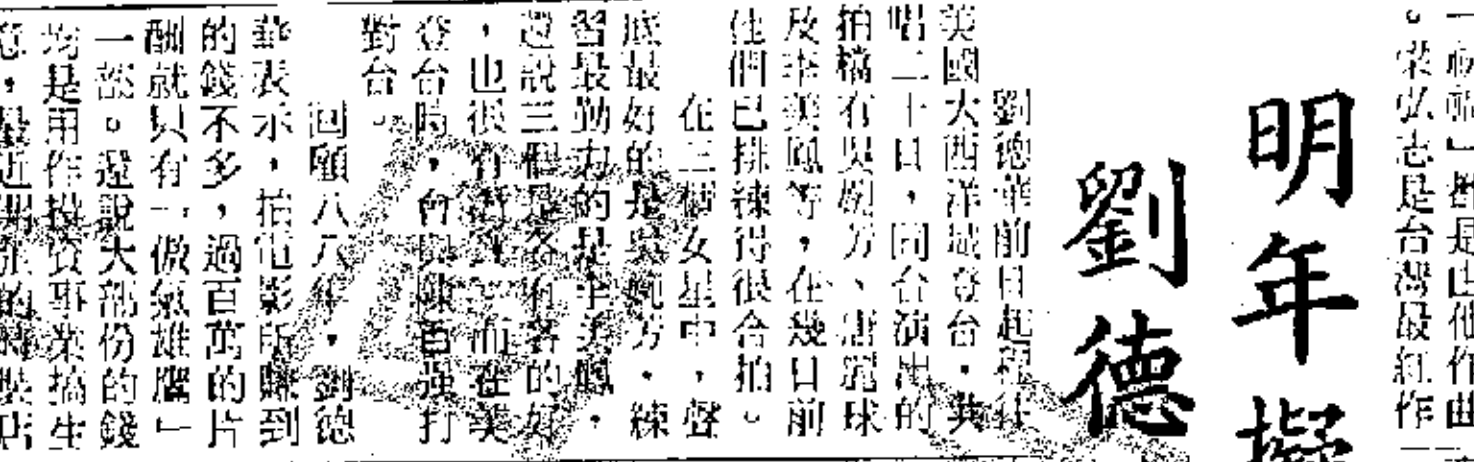 一祝福」都是由他作曲
。榮弘志是台灣最紅作
明年擬
劉德
劉德華前日起程往
美國大西洋城登台,共
唱二十日,同台演出的
拍檔有吳婉方、唐寵球
及李美鳳等,在幾日前
他們已排練得很合拍。
在三個女星中,聲
底最好的是吳婉方,練
習最勤力的是李美鳳,
還說三個是各有各的好
,也很有 而在美
登台時,會與陳百強打
對台。
回顧八八年,劉德
華表示,拍電影所賺到
的錢不多,過百萬的片
酬就只有「傲氣雄鷹」
一部。還說大部份的錢
均是用作投資事業搞生
意,最近開張的時裝店